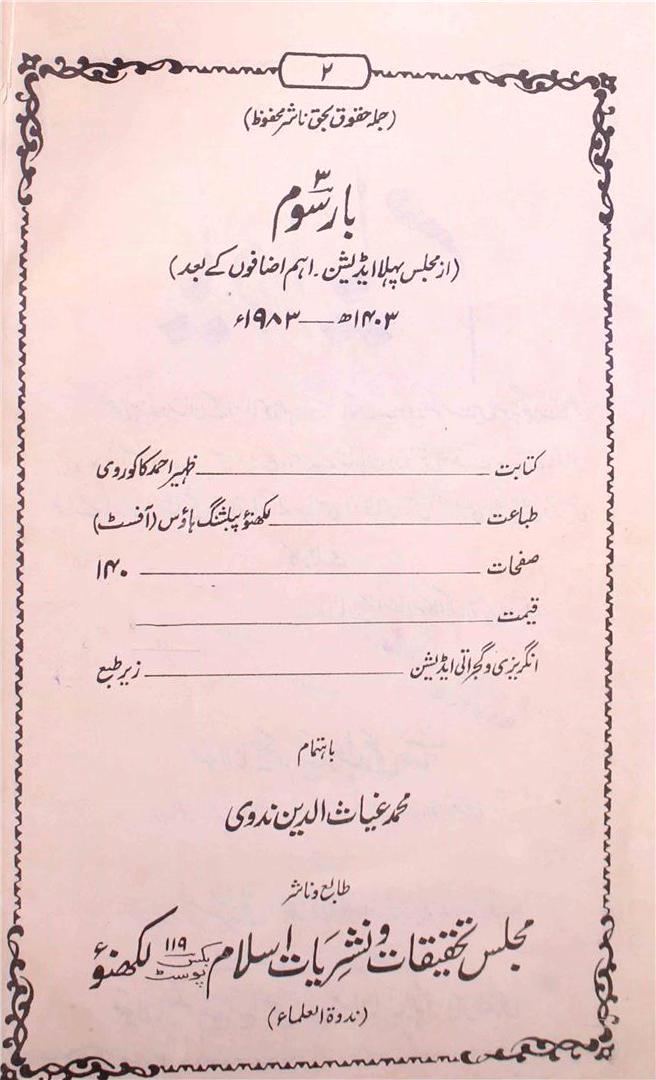 ۲
(جملہ حقوق بحق ناشر محفوظ)
بار سوم ۳
(از مجلس پہلا ایڈیشن۔ اہم اضافوں کے بعد)
۱۴۰۳ھ — ۱۹۸۳ء
کتابت ـــــ ظہیر احمد کاکوروی
طباعت ـــــ لکھنؤ پبلشنگ ہاؤس (آفسٹ)
صفحات ـــــ ۱۴۰
قیمت ـــــ
انگریزی و گجراتی ایڈیشن ـــــ زیر طبع
باہتمام
محمد غیاث الدین ندوی
طابع و ناشر
مجلس تحقیقات و نشریات اسلام پوسٹ بکس ۱۱۹ لکھنؤ
(ندوۃ العلماء)